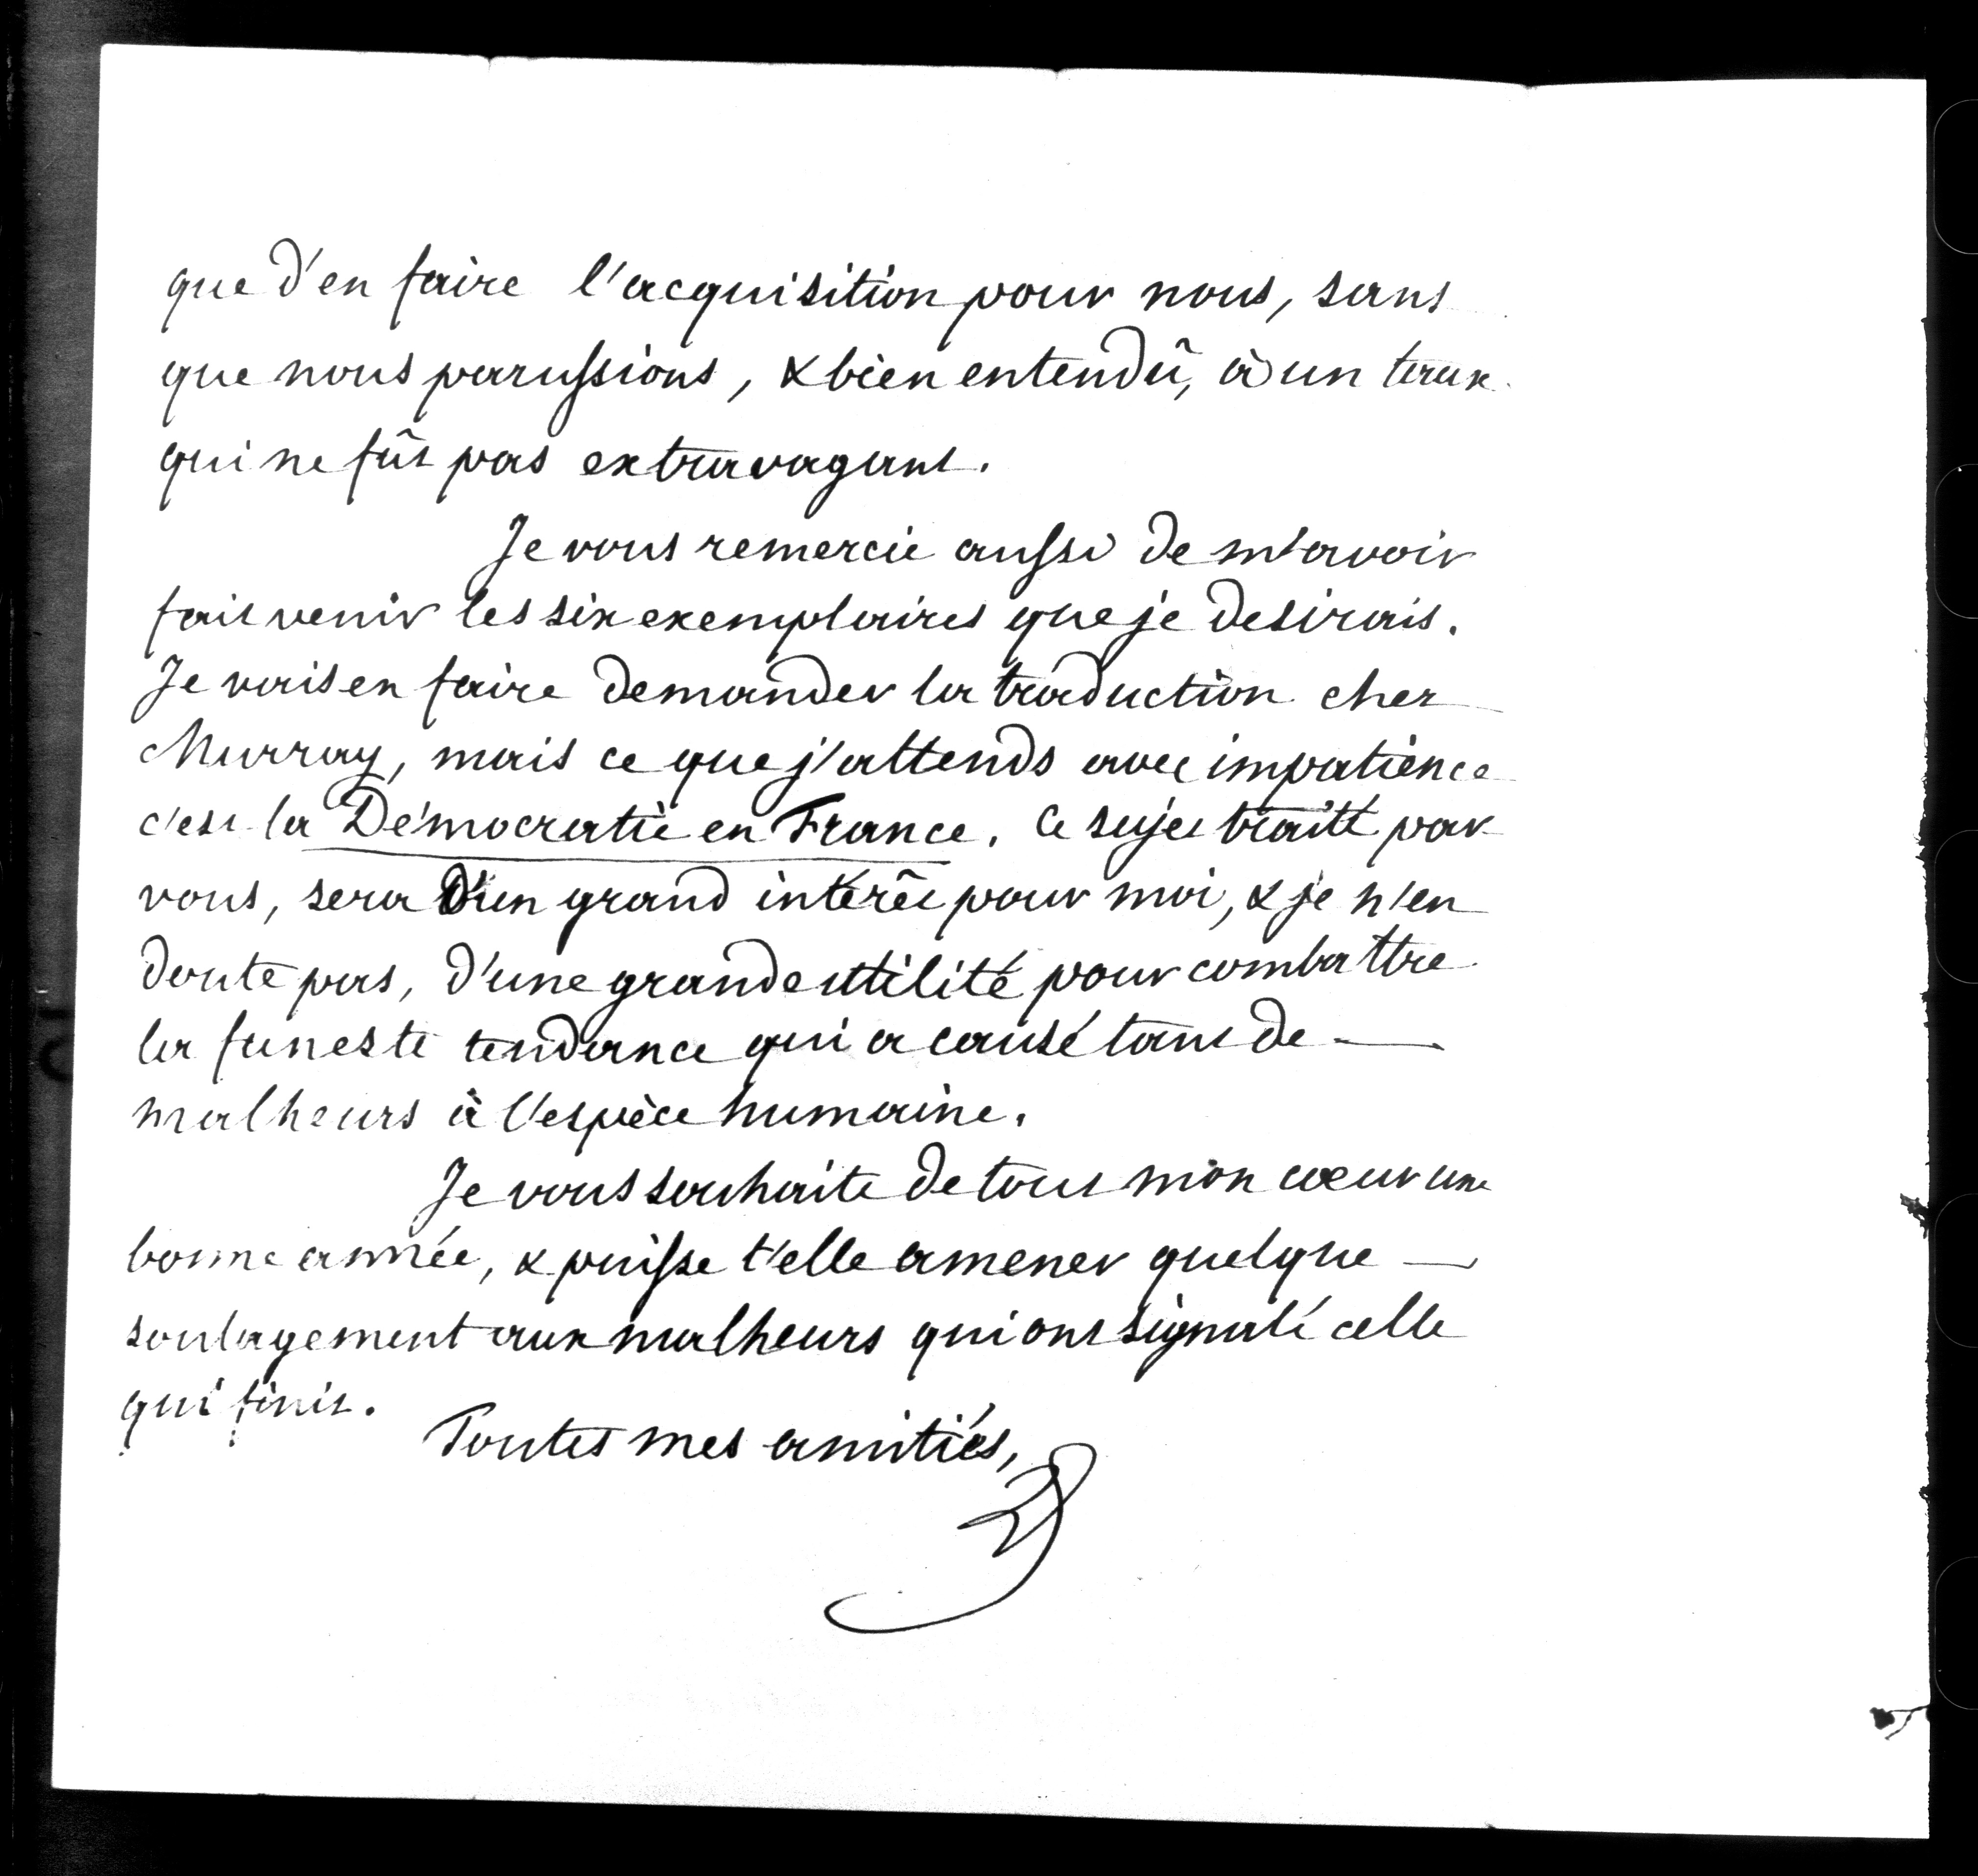 que d'en faire l'acquisition pour nous, sans
que nous parussions, & bien entendû, à un taux
qui ne fût pas extravagant.
Je vous remercie aussi de m'avoir
fait venir les six exemplaires que je desirais.
Je vais en faire demander la traduction chez
Murray, mais ce que j'attends avec impatience
c'est la Démocratie en France. Ce sujet traité par
vous, sera d'un grand intérêt pour moi, & je n'en
doute pas, d'une grande utilité pour combattre
la funeste tendance qui a causé tant de
malheurs à l'espèce humaine.
Je vous souhaite de tout mon cœur une
bonne année, & puisse t'elle amener quelque
soulagement aux malheurs qui ont signalé celle
qui finit.
Toutes mes amitiés,